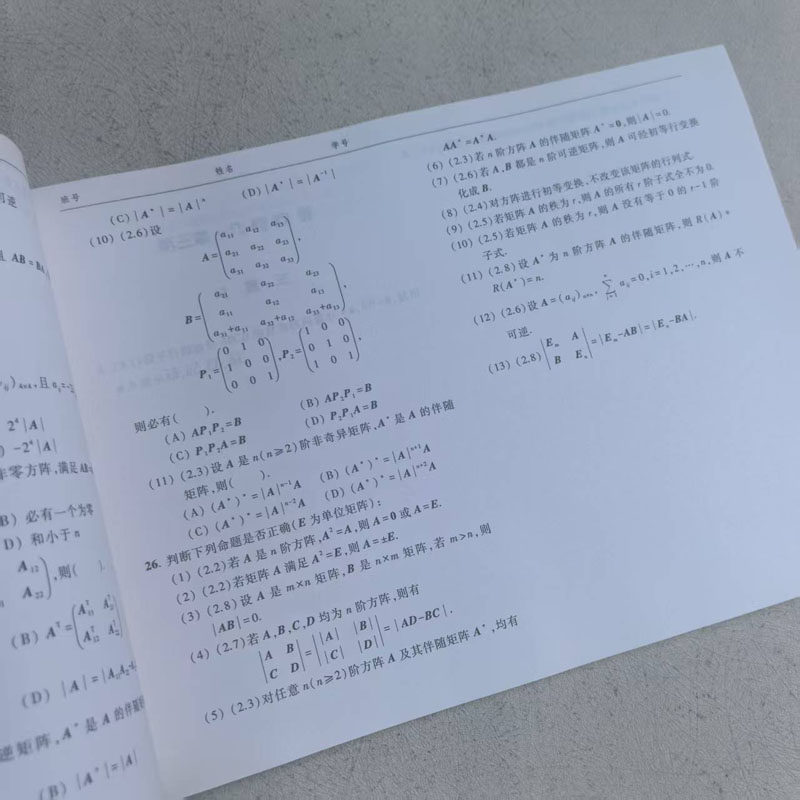 可逆
且 AB=BA
)₄ₓ₄,且 a
2⁴|A|
) -2⁴|A|
非零方阵,满足 AB=
B) 必有一个为零
D) 和小于 n
A₁₂
A₂₂),则( ).
(B) Aᵀ=(A₁₁ᵀ
A₁₂ᵀ
(D) |A|=|A₁₁A₂₂
逆矩阵,A* 是 A 的伴随
(B) |A*|=|A|
班号 姓名 学号
(C) |A*|=|A|ⁿ (D) |A*|=|A⁻¹|
(10) (2.6)设
A=(a₁₁ a₁₂ a₁₃
a₂₁ a₂₂ a₂₃
a₃₁ a₃₂ a₃₃),
B=(a₂₁ a₂₂ a₂₃
a₁₁ a₁₂ a₁₃
a₃₁+a₁₁ a₃₂+a₁₂ a₃₃+a₁₃),
P₁=(0 1 0
1 0 0
0 0 1),P₂=(1 0 0
0 1 0
1 0 1),
则必有( ).
(A) AP₁P₂=B (B) AP₂P₁=B
(C) P₁P₂A=B (D) P₂P₁A=B
(11) (2.3)设 A 是 n(n≥2)阶非奇异矩阵,A* 是 A 的伴随
矩阵,则( ).
(A) (A*)*=|A|ⁿ⁻¹A (B) (A*)*=|A|ⁿ⁺¹A
(C) (A*)*=|A|ⁿ⁻²A (D) (A*)*=|A|ⁿ⁺²A
26. 判断下列命题是否正确(E 为单位矩阵):
(1) (2.2)若 A 是 n 阶方阵,A²=A,则 A=0 或 A=E.
(2) (2.2)若矩阵 A 满足 A²=E,则 A=±E.
(3) (2.8)设 A 是 m×n 矩阵,B 是 n×m 矩阵,若 m>n,则
|AB|=0.
(4) (2.7)若 A,B,C,D 均为 n 阶方阵,则有
|A B
C D|=||A| |B|
|C| |D||=|AD-BC|.
(5) (2.3)对任意 n(n≥2)阶方阵 A 及其伴随矩阵 A*,均有
AA*=A*A.
(6) (2.3)若 n 阶方阵 A 的伴随矩阵 A*=0,则|A|=0.
(7) (2.6)若 A,B 都是 n 阶可逆矩阵,则 A 可经初等行变换
化成 B.
(8) (2.4)对方阵进行初等变换,不改变该矩阵的行列式.
(9) (2.5)若矩阵 A 的秩为 r,则 A 的所有 r 阶子式全不为 0.
(10) (2.5)若矩阵 A 的秩为 r,则 A 没有等于 0 的 r-1 阶
子式.
(11) (2.8)设 A* 为 n 阶方阵 A 的伴随矩阵,则 R(A)=
R(A*)=n.
(12) (2.6)设 A=(aᵢⱼ)ₙₓₙ, ∑ aᵢⱼ=0,i=1,2,⋯,n,则 A 不
可逆.
(13) (2.8)|Eₘ A
B Eₙ|=|Eₘ-AB|=|Eₙ-BA|.